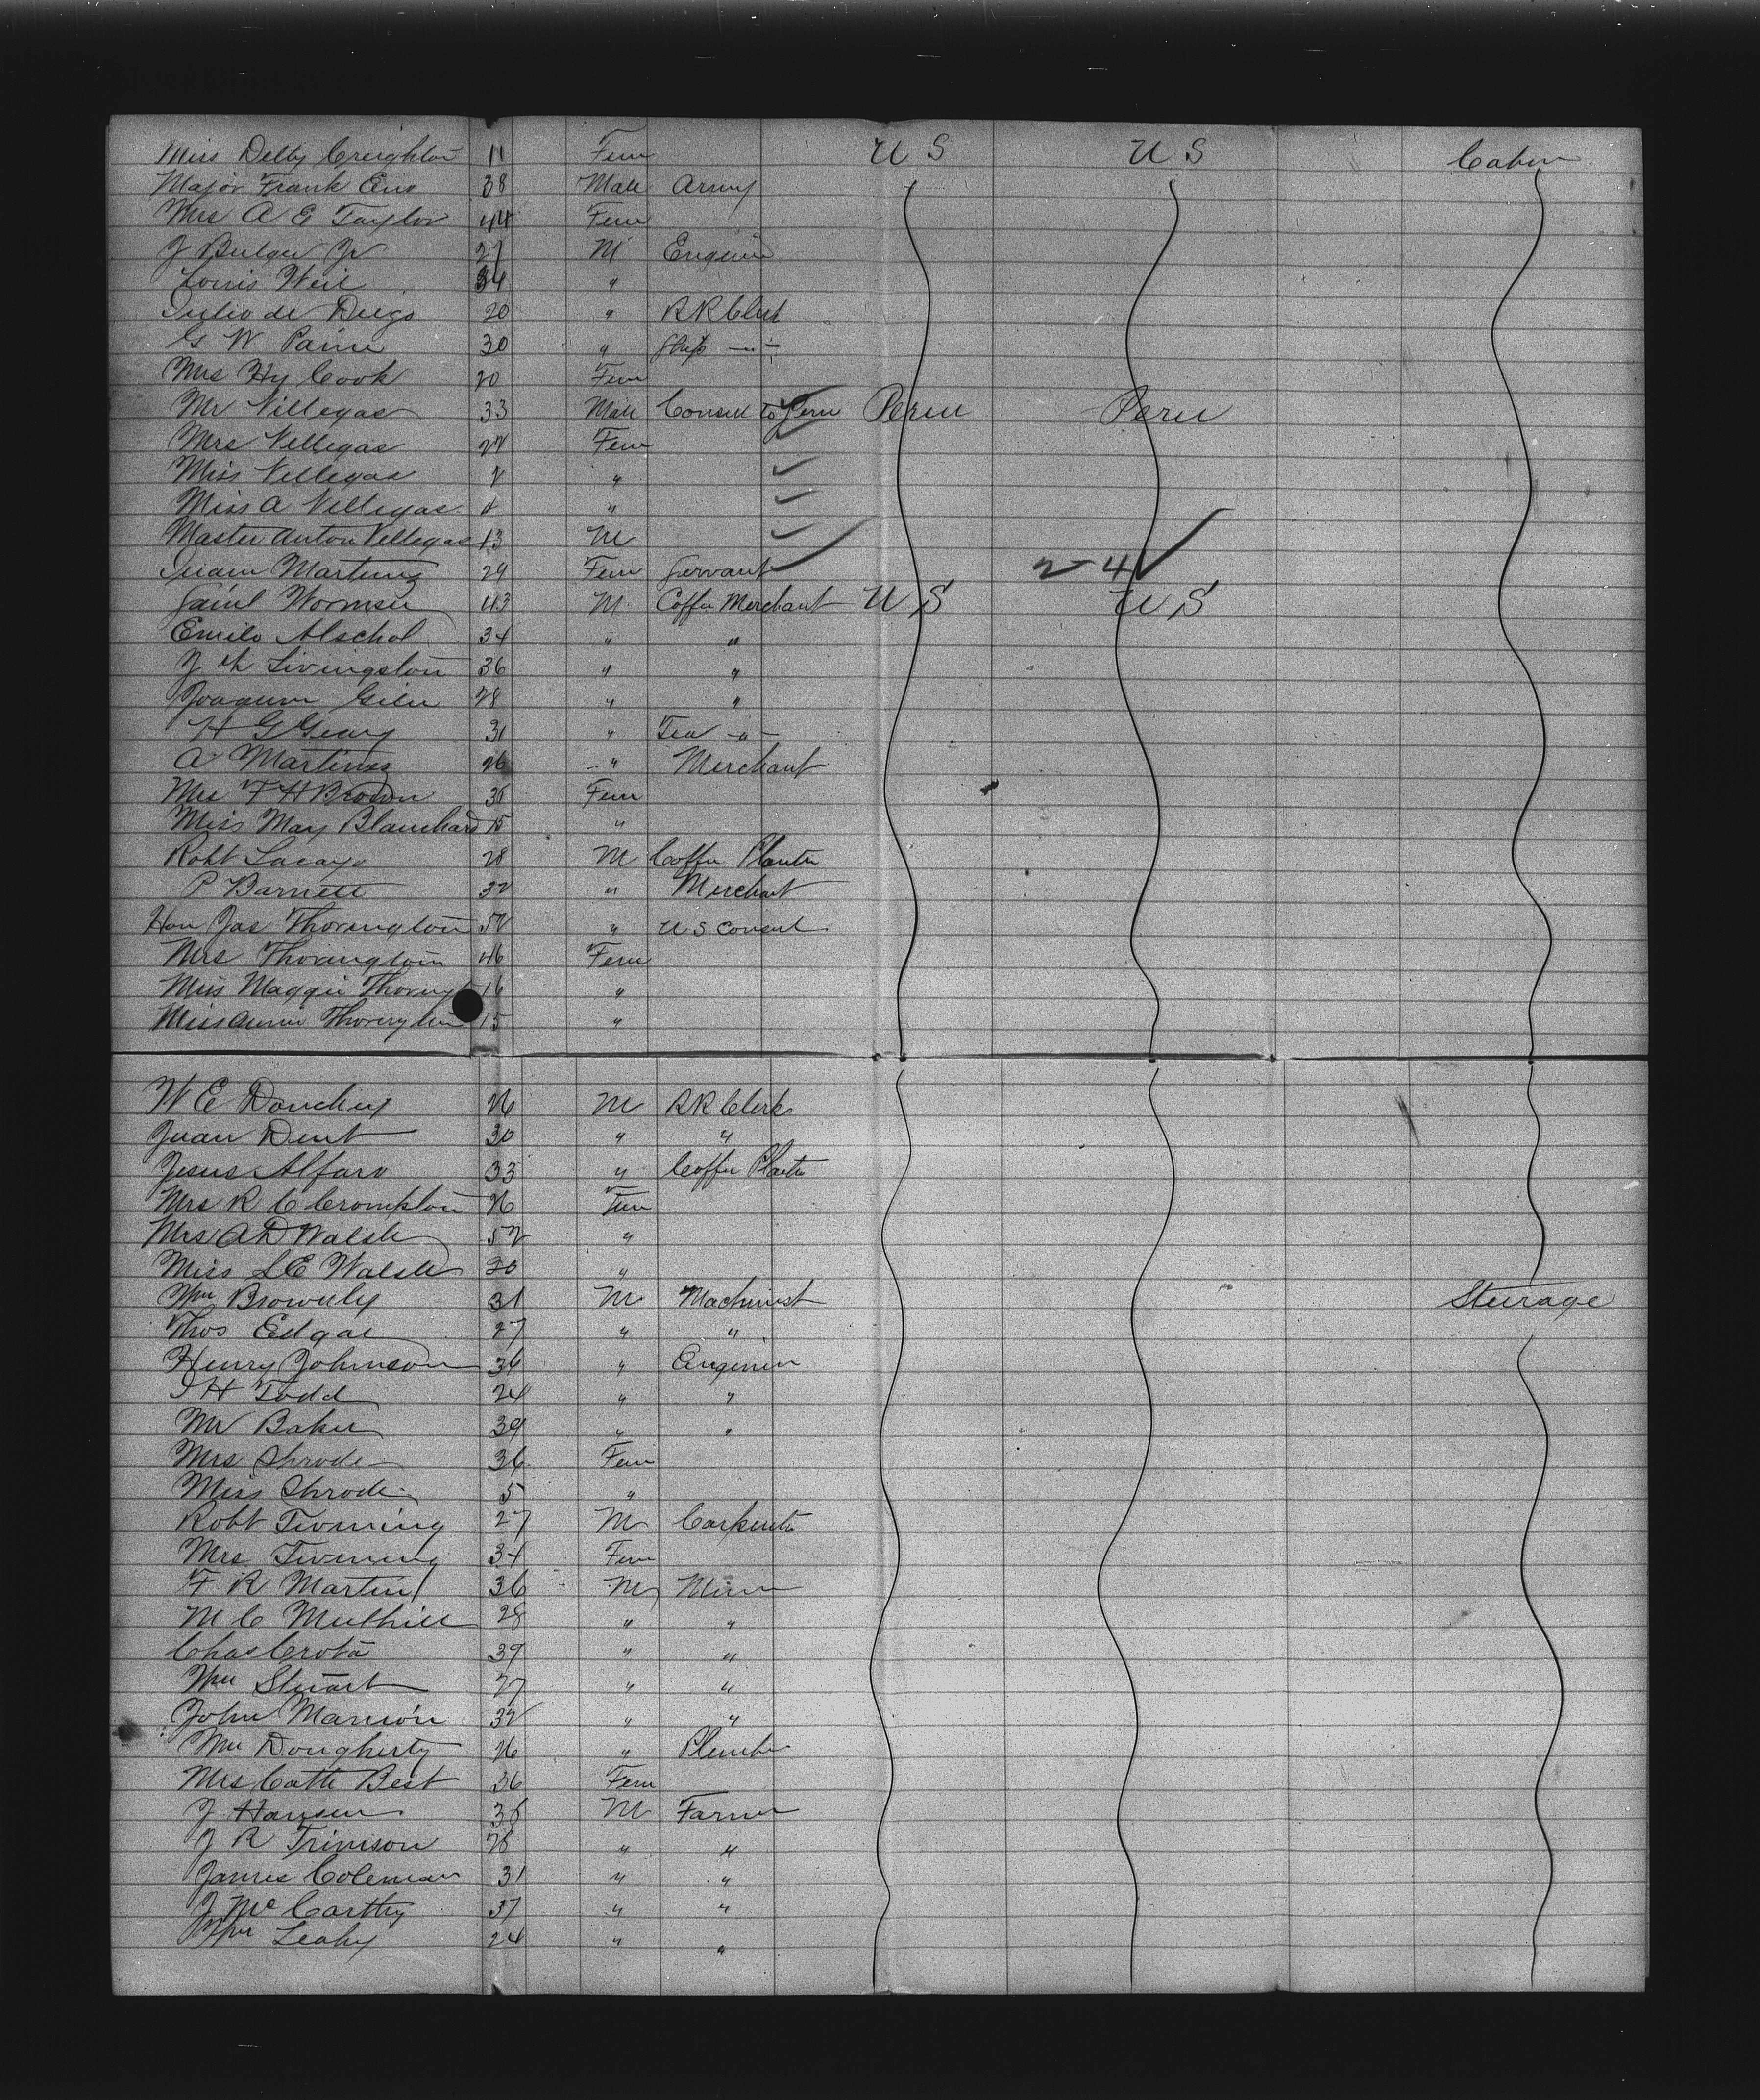 Miss Delly Creighton 11 Fem U S U S Cabin
Major Frank 38 Male Army
Mrs A E Taylor 44 Fem
J Bulger Jr 27 M Engineer
Louis Weil 34 "
Julio de Diego 20 " RR Clerk
G W Paine 30 " Ship — " —
Mrs Hy Cook 20 Fem
Mr Villegas 33 Male Consul to Peru Peru Peru
Mrs Villegas 27 Fem
Miss Villegas "
Miss A Villegas "
Master Anton Villegas 13 M
Juan Martinez 29 Fem Servant 2-4
Saml Wormser 43 M Coffee Merchant U S U S
Emilo Alschol 34 " "
Livingston 36 " "
Joaquin 28 " "
H G Geary 31 " Tea — " —
A Martinez 26 " Merchant
Mrs F H Brown 35 Fem
Miss May Blanchard 15 "
Robt Lacayo 28 M Coffee Planter
P Barnett 32 " Merchant
Hon Jas Thorington 52 " U S Consul
Mrs Thorington 46 Fem
Miss Maggie Thoringt 16 "
Miss Annie Thorington 15 "
W E 26 M RR Clerk
Juan Dent 30 " "
Jesus Alfaro 33 " Coffee Planter
Mrs R C Crompton 26 Fem
Mrs A D Walsh 52 "
Miss L E Walsh 20 "
Wm Brownly 31 M Machinist Steerage
Thos Edgar 27 " "
Henry Johnson 36 " Engineer
J H Todd 24 " "
Mr Baker 39 " "
Mrs Shrode 36 Fem
Miss Shrode 5 "
Robt Twming 27 M Carpenter
Mrs Twming 34 Fem
F R Martin 36 M Miner
M C Mulhill 28 " "
Chas Crota 39 " "
Wm Stuart 27 " "
John Marion 32 " "
Wm Dougherty 26 " Plumber
Mrs Cath Best 36 Fem
J Hansen 38 M Farmer
J R Trimson 28 " "
James Coleman 31 " "
J McCarthy 37 " "
Wm Leahy 24 " "